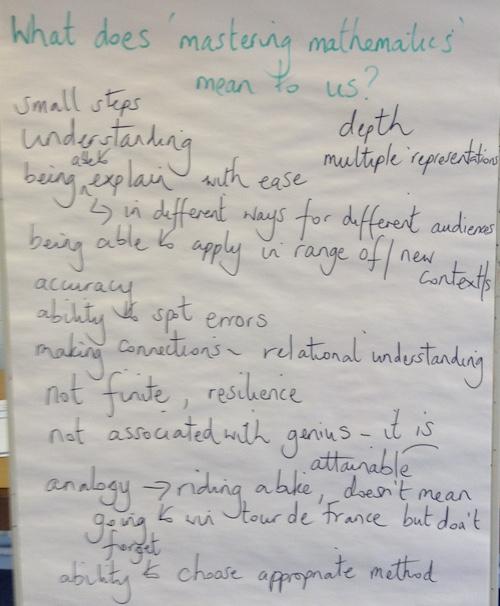 What does 'mastering mathematics'
mean to us?
small steps
understanding
depth
multiple representations
being able to explain with ease
↳ in different ways for different audiences
being able to apply in range of / new
context/s
accuracy
ability to spot errors
making connections ~ relational understanding
not finite, resilience
not associated with genius - it is
attainable
analogy → riding a bike, doesn't mean
going to win tour de france but don't
forget
ability to choose appropriate method